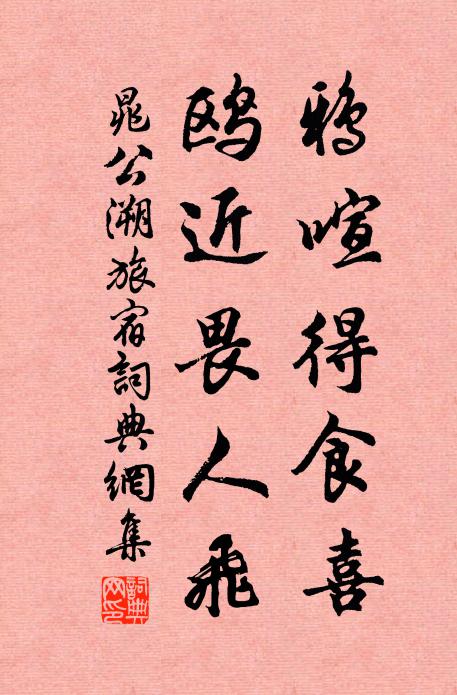 鴉喧得食喜
鸥近畏人飛
晁公溯旅宿詞典網集
詞典
网印